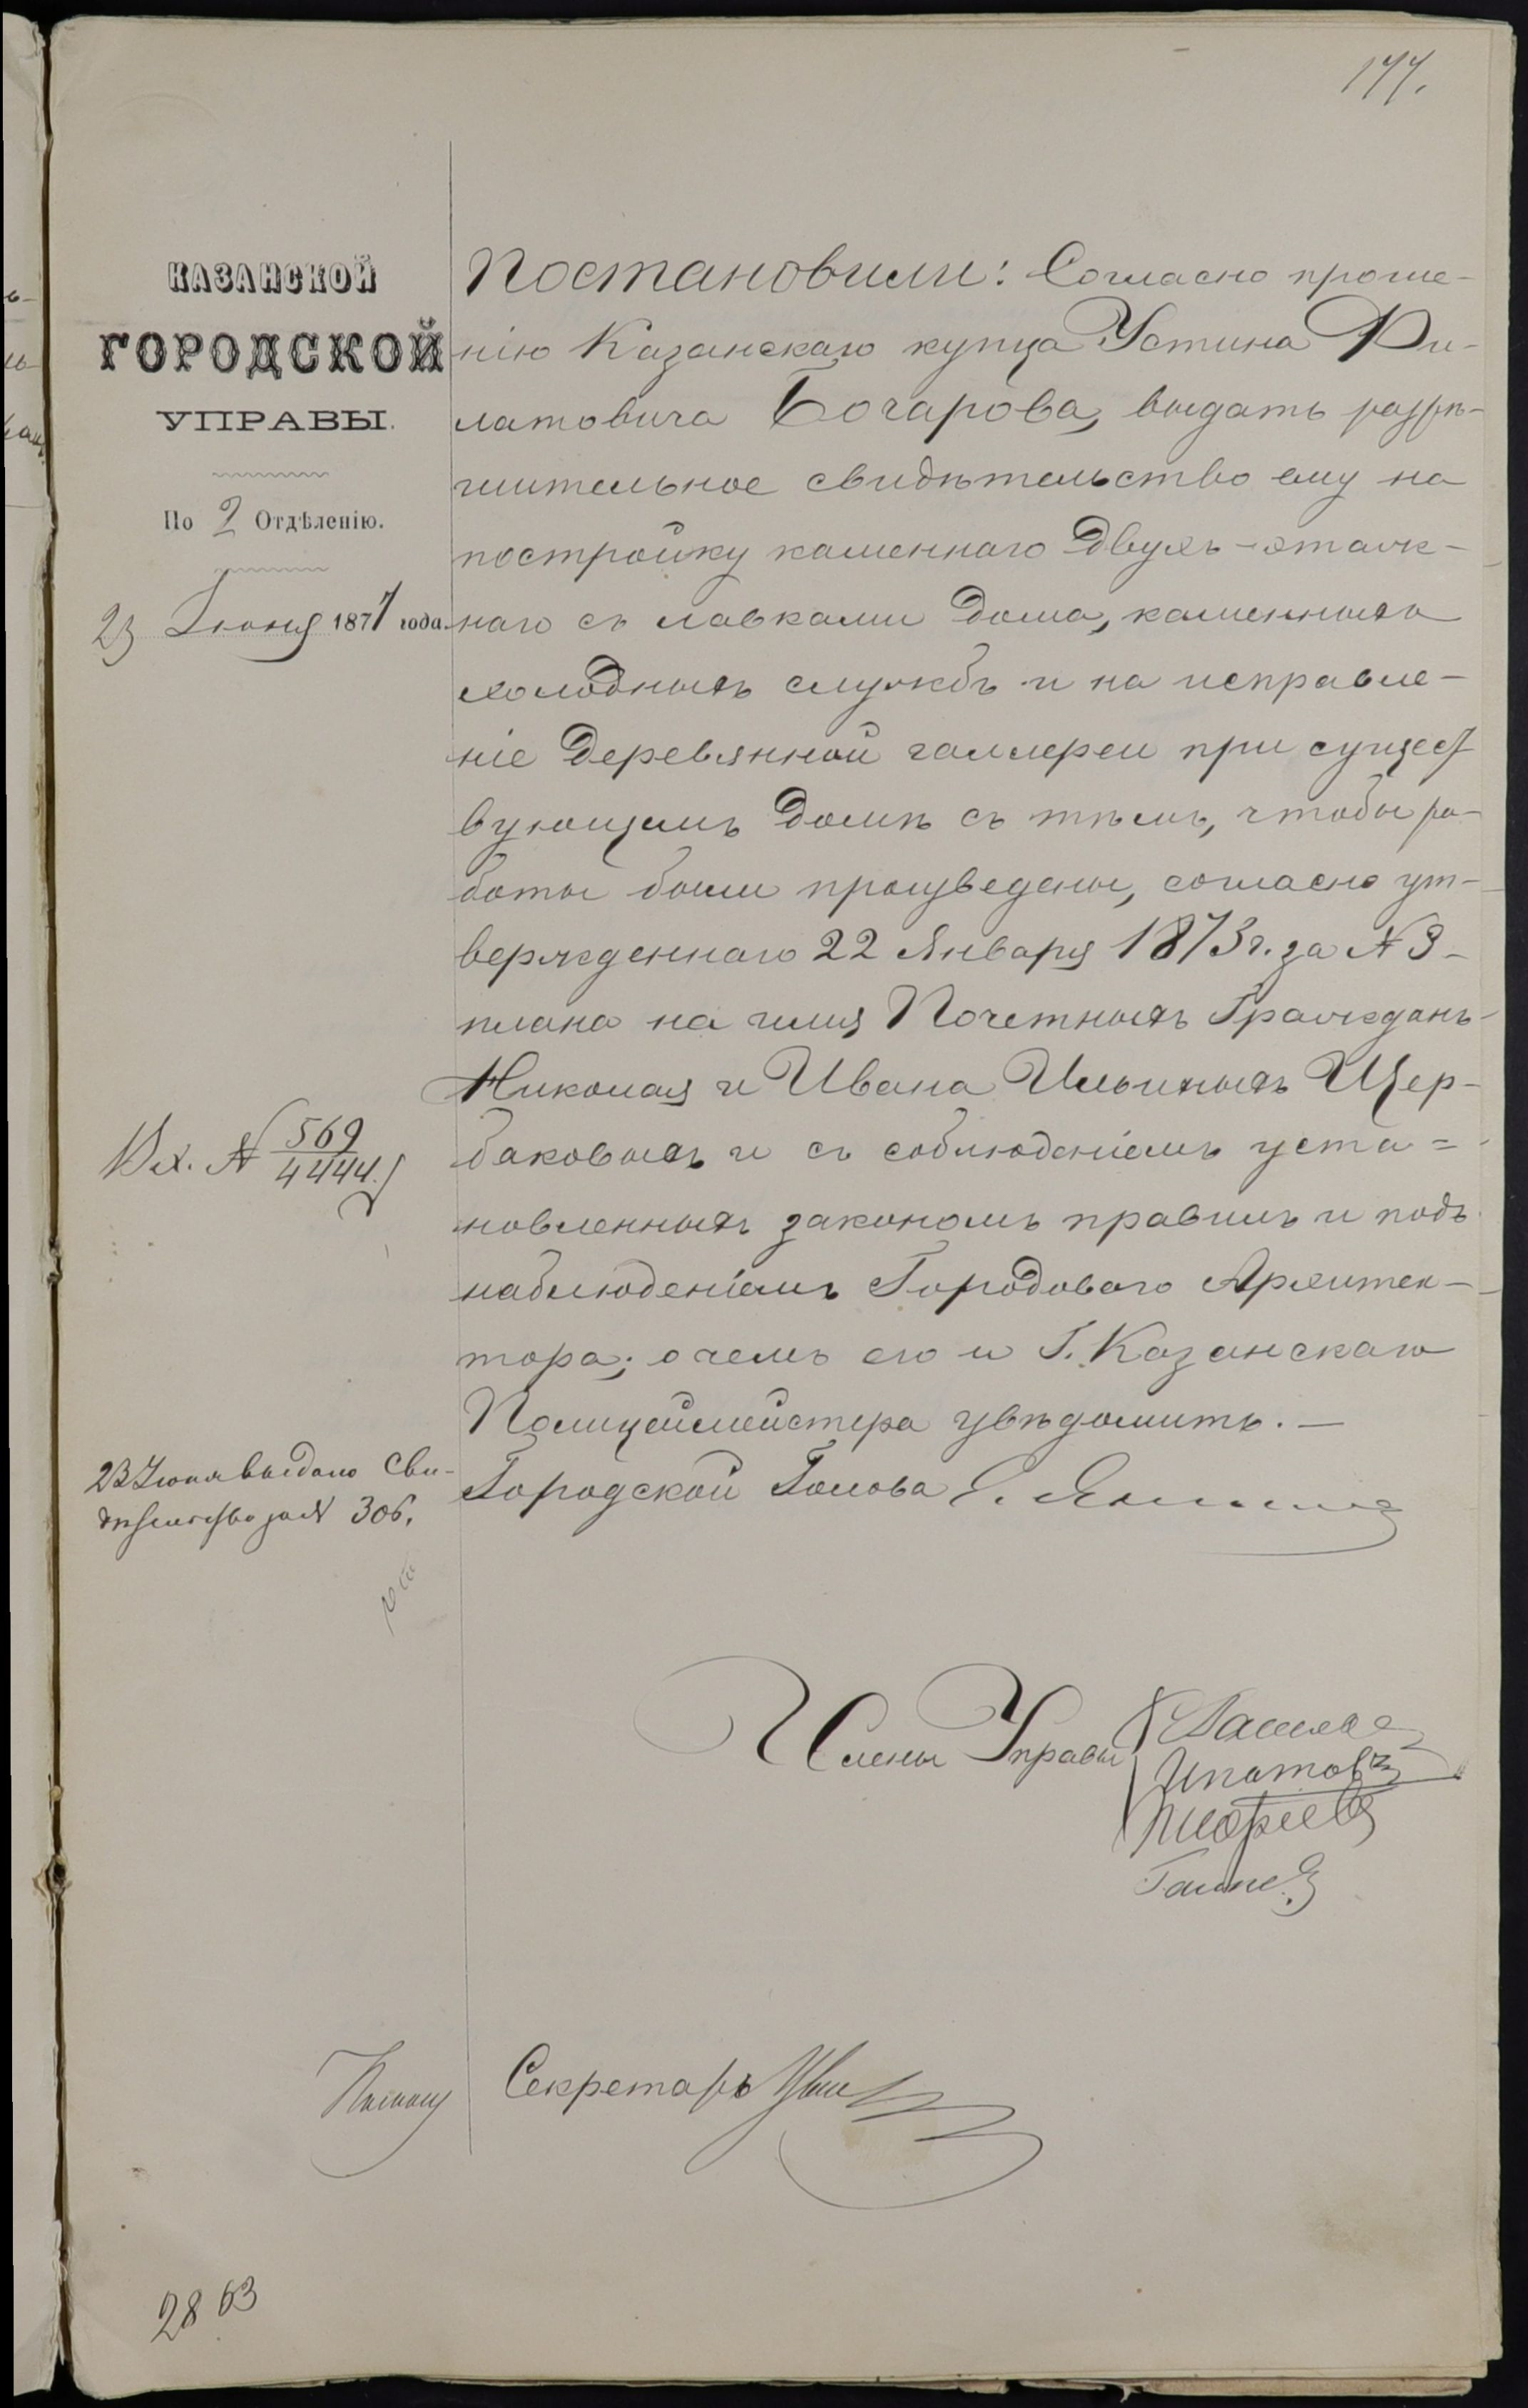 177.
КАЗАНСКОЙ
ГОРОДСКОЙ
УПРАВЫ.
По 2 Отдѣленію.
23 Іюня 1877 года.
Вх. № 569
4444.
23 Іюня выдано Сви-
дѣтельство за № 306.
Постановили: Согласно проше-
нію Казанскаго купца Устина Фи-
латовича Бочарова, выдать разрѣ-
шительное свидѣтельство ему на
постройку каменнаго двухъ-этаж-
наго съ лавками дома, каменныхъ
холодныхъ службъ и на исправле-
ніе деревянной галлереи при сущест
вующемъ домѣ съ тѣмъ, чтобы ра-
боты были произведены, согласно ут-
вержденнаго 22 Января 1873 г. за № 3-
плана на имя Почетныхъ Гражданъ
Николая и Ивана Ильиныхъ Щер-
баковыхъ и съ соблюденіемъ уста=
новленныхъ закономъ правилъ и подъ
наблюденіемъ Городоваго Архитек-
тора; о чемъ его и Г. Казанскаго
Полицеймейстера увѣдомить. —
Городской Голова
Члены Управы
Ипатовъ
Секретарь
2863